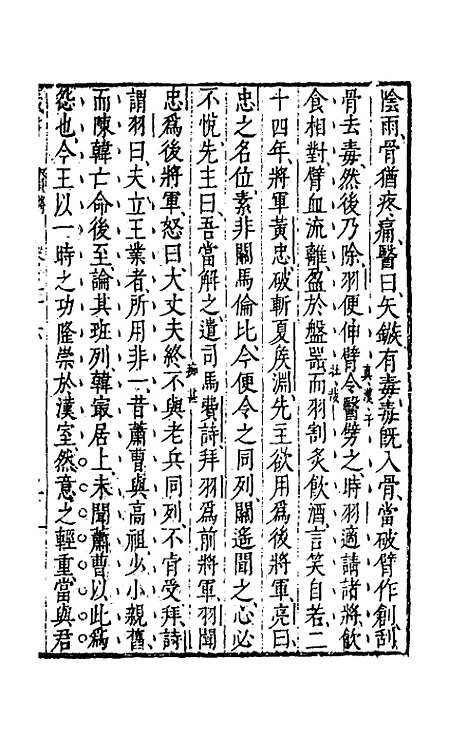 陰雨、骨猶疼痛、醫曰、矢鏃有毒、毒旣入骨、當破臂作創、刮
骨去毒、然後乃除、羽便伸臂令醫劈之、時羽適請諸將飲
食相對、臂血流離、盈於盤器、而羽割炙飲酒、言笑自若、二
十四年、將軍黃忠破斬夏矦淵、先主欲用爲後將軍、亮曰、
忠之名位、素非關馬倫比、今便令之同列、關遙聞之、心必
不悅、先主曰、吾當解之、遣司馬費詩拜羽爲前將軍、羽聞
忠爲後將軍、怒曰、大丈夫終不與老兵同列、不肯受拜、詩
謂羽曰、夫立王業者、所用非一、昔蕭曹與高祖少小親舊、
而陳韓亡命後至、論其班列、韓寂居上、未聞蕭曹以此爲
怨也、今王以一時之功、隆崇於漢室、然意之輕重、當與君